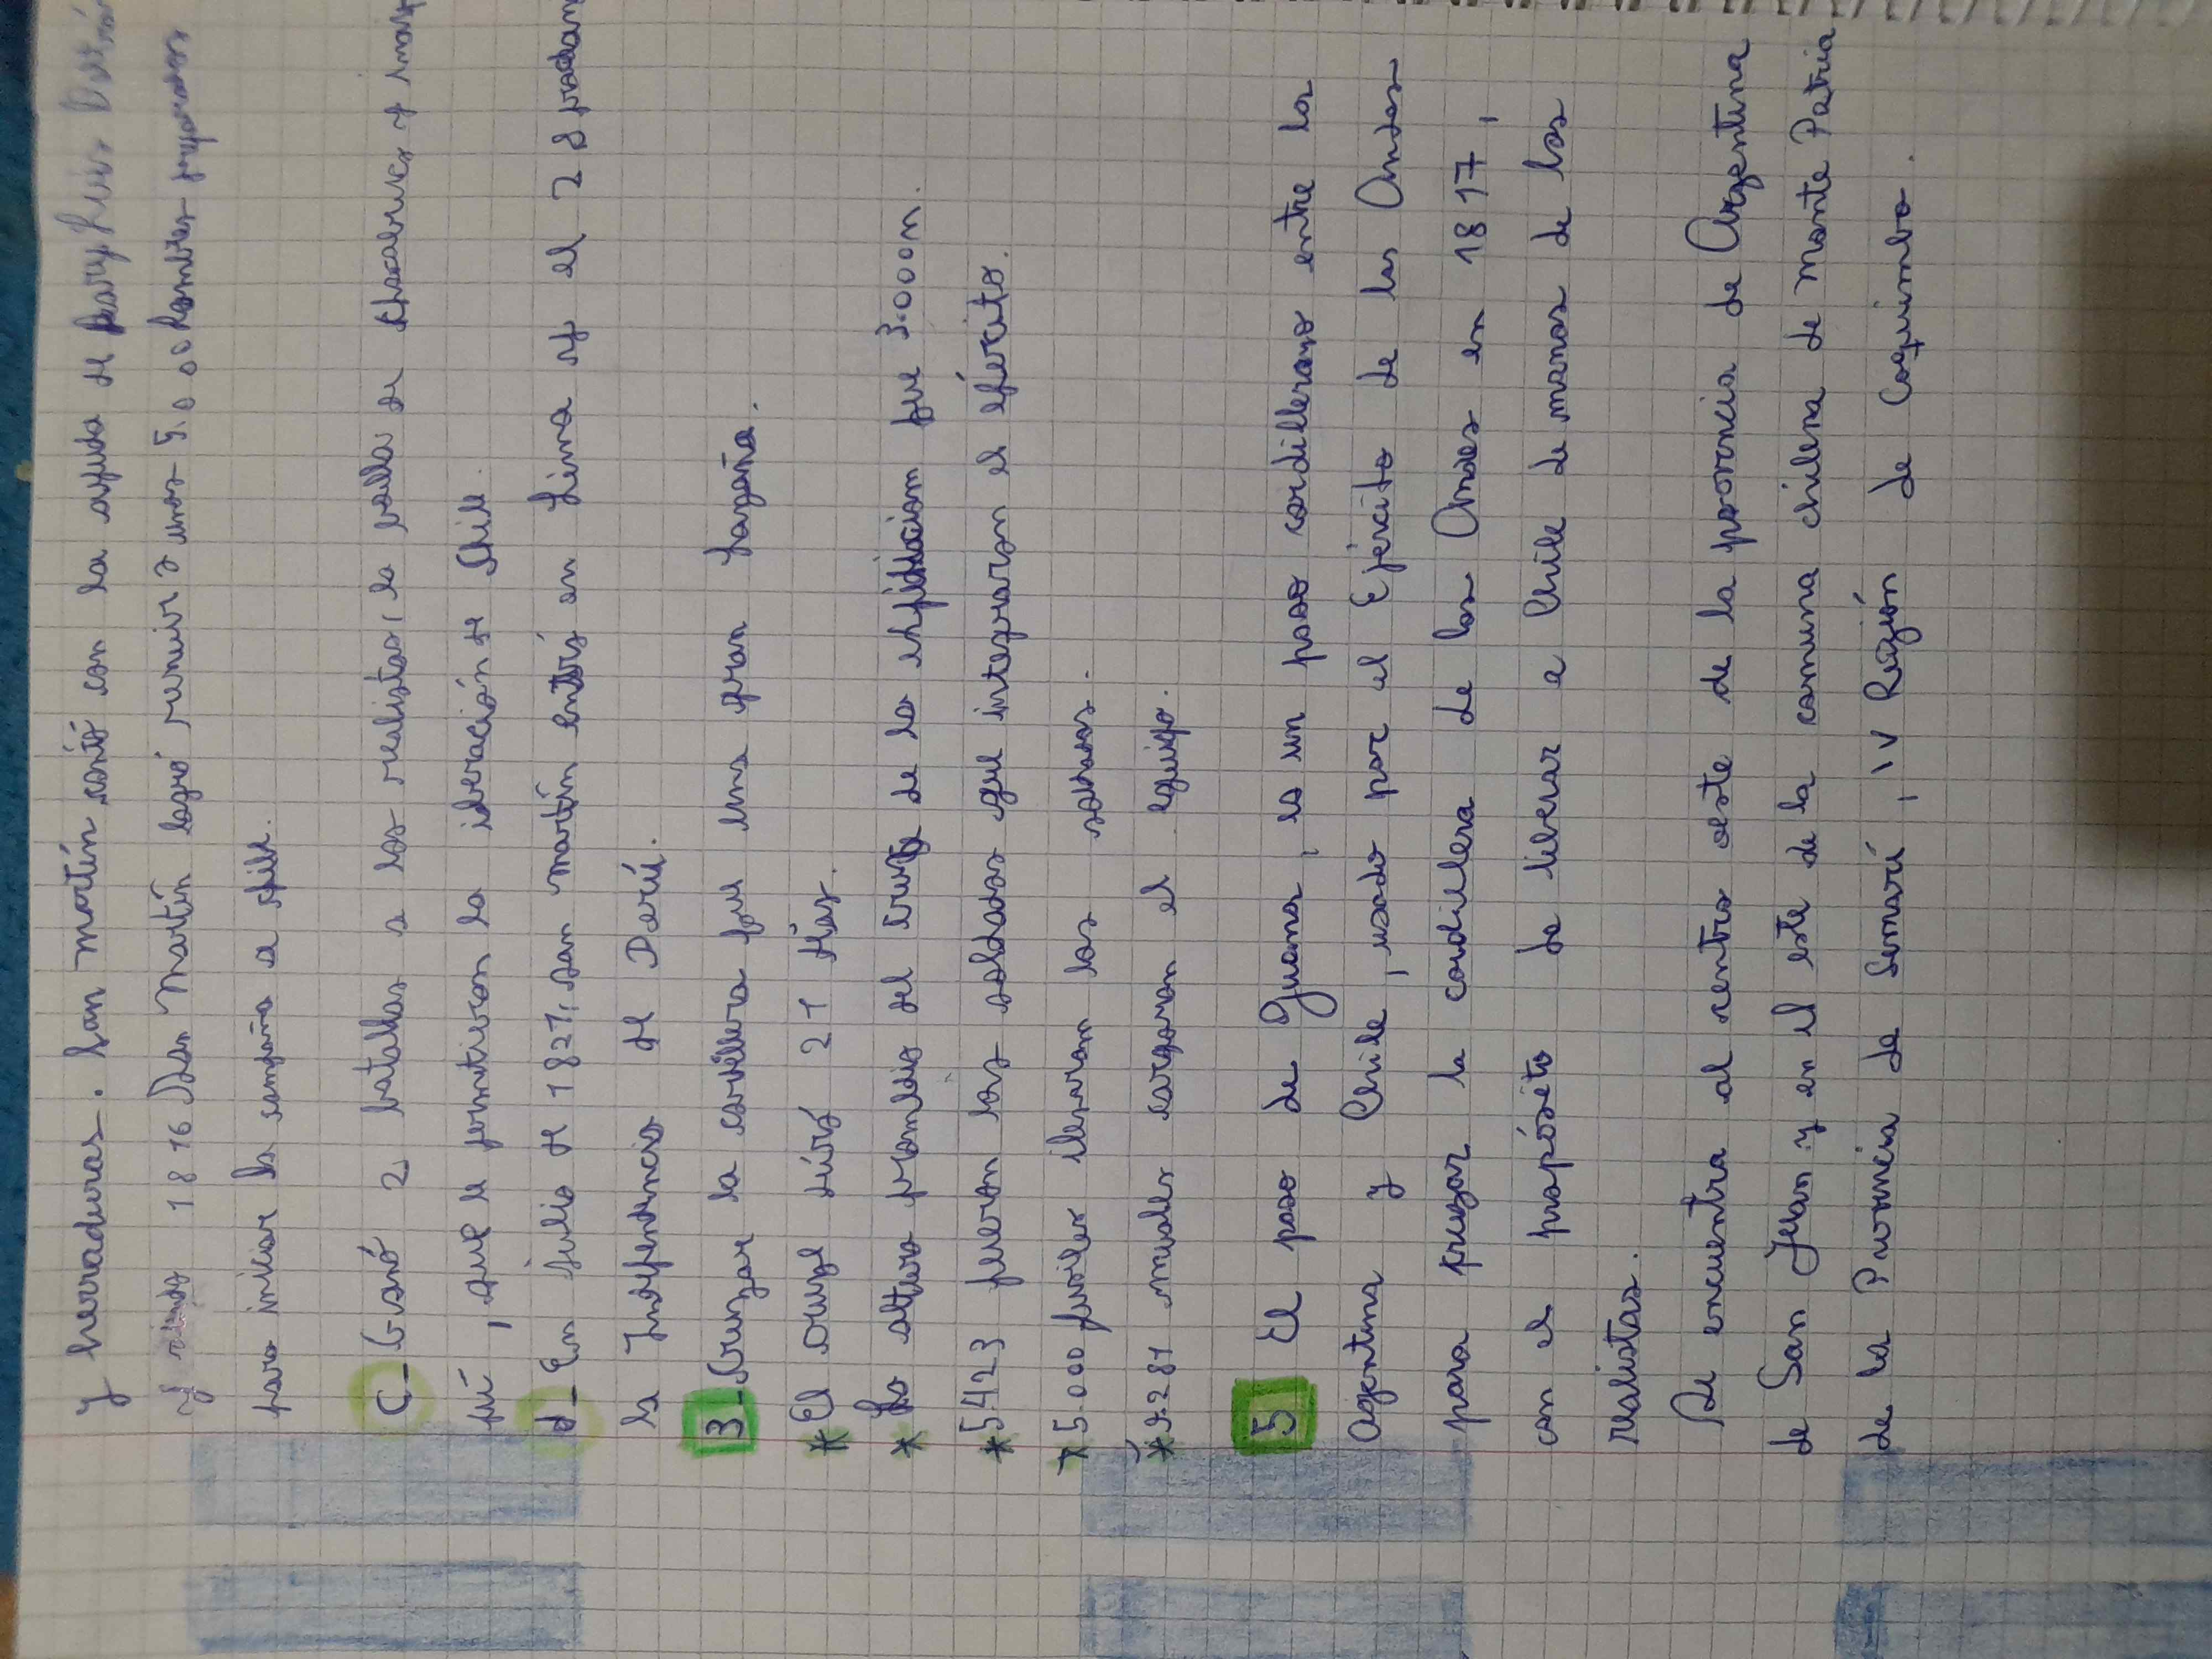 y herraduras. San martín contó con la ayuda de Fray Luis
1816 San Martín logró reunir a unos 5.000 hombres preparados
para iniciar la campaña a chile.
C_Ganó 2 batallas a los realistas, la
pú, que le permitieron la iberación de Chile.
d_En julio de 1821, San martín entró en Lima y el 28
la Independencia de Perú.
3_Cruzar la cordillera fue una gran hazaña.
*El cruze duró 21 días.
*La altura promedio del cruze de la fue 3.000m.
*5.423 fueron los soldados que integraron el éjercito.
*5.000 fusiles llevaron los soldados.
*9.281 mulas cargaron el equipo.
5 El paso de Guana, es un paso cordillerano entre la
Argentina y Chile, usado por el Ejército de los Andes
para cruzar la cordillera de los Andes en 1817,
con el propósito de liberar a Chile de manos de los
realistas.
Se encuentra al centro oeste de la provincia de Argentina
de San Juan y en el este de la comuna chilena de Monte Patria
de la Provincia de Limarí, IV Región de Coquimbo.